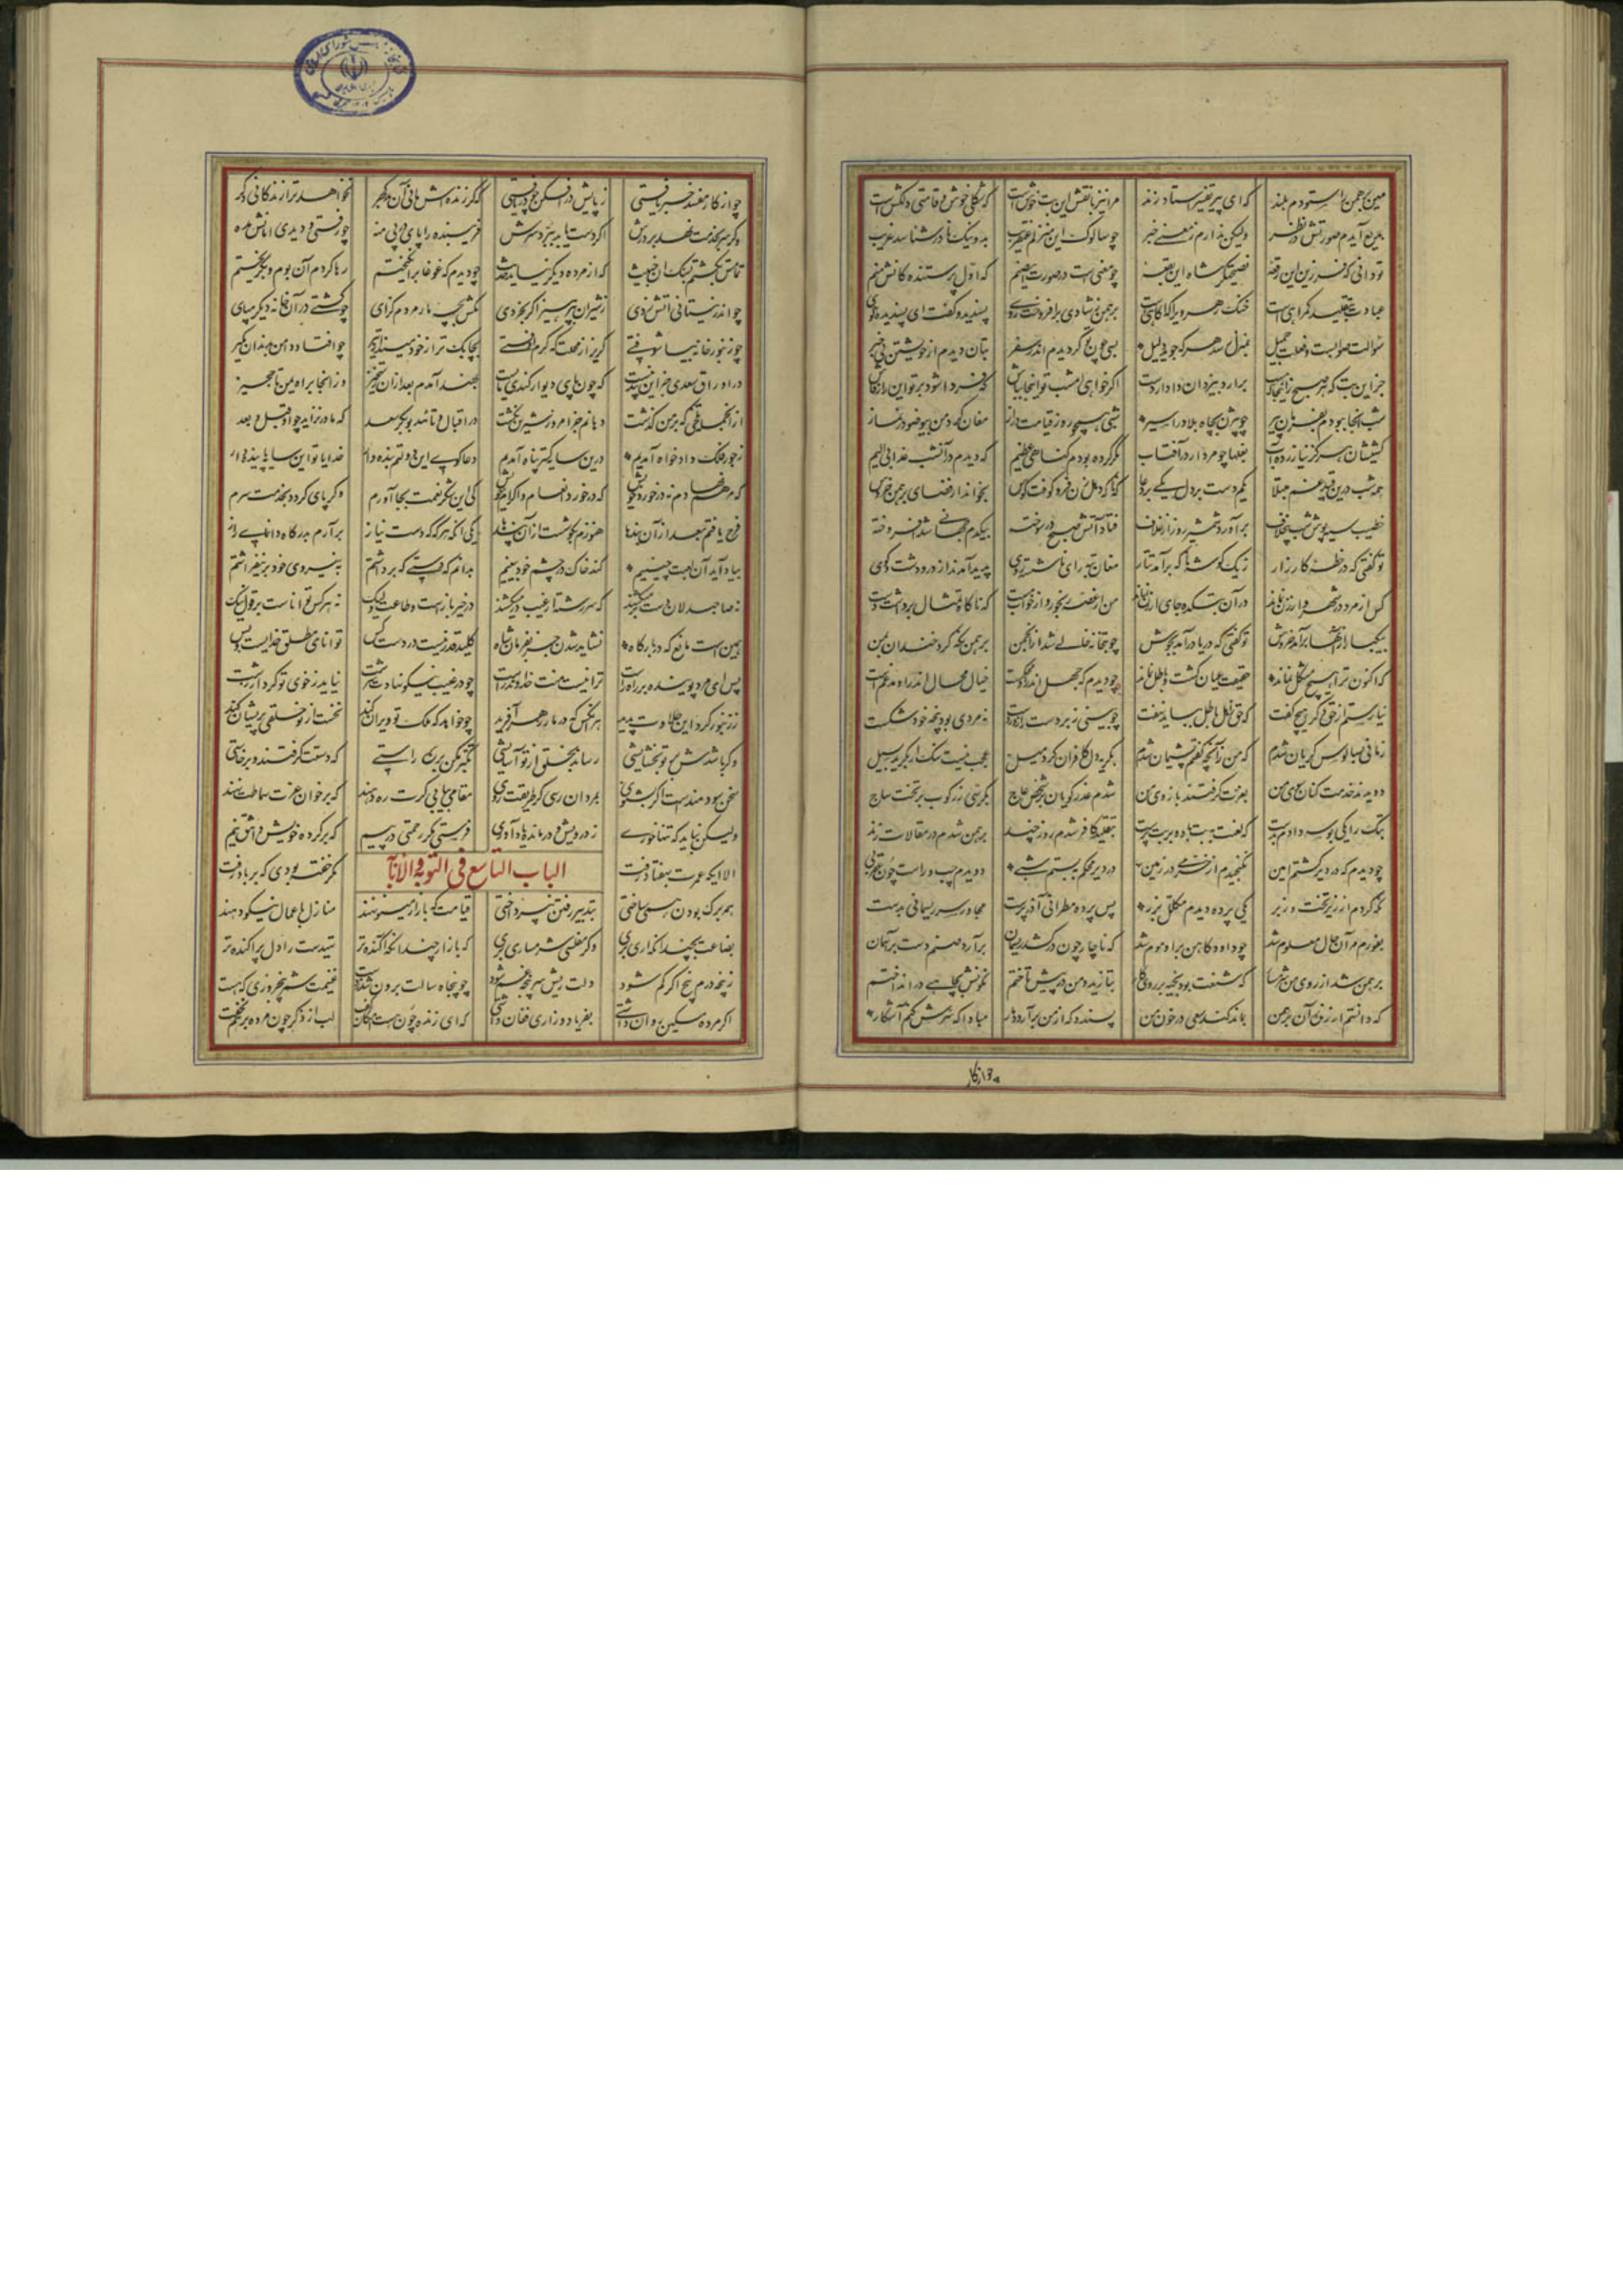 مهین برهمن را ستودم بلند که ای پیر تفسیر استاد زند مرا نیز با نقش این بت خوش است که شکلی خوش و قامتی دلکش است
بدیع آیدم صورتش در نظر ولیکن ندارم ز معنی خبر چو سالوک این منزلم عنقریب بد و نیک نادر شناسد غریب
تو دانی که فرزین این رقعه نصیحتگر شاه این بقعه چه معنی است در صورت این صنم که اول پرستنده کانش منم
عبادت بتقلید گمراهی است خنک رهروی را که آگاهی است برهمن ز شادی برافروخت روی پسندید و گفت ای پسندیده گوی
سؤالت صوابست و فعلت جمیل بمنزل رسد هر که جوید دلیل بسی چون تو گردیدم اندر سفر بتان دیدم از خویشتن بی خبر
جز این بت که هر صبح از اینجا که هست برآرد بیزدان دادار دست اگر خواهی امشب تو اینجا بباش که فردا شود بر تو این راز فاش
شب آنجا ببودم بفرمان پیر چو بیژن بچاه بلا در اسیر شبی همچو روز قیامت دراز مغان گرد من بی وضو در نماز
کشیشان هرگز نیازرده آب بغلها چو مردار در آفتاب مگر کرده بودم گناهی عظیم که دیدم در آن شب عذابی الیم
همه شب درین قید غم مبتلا یکم دست بر دل یکی بر دعا که ناگه دهل زن فرو کوفت کوس بخواند از فضای برهمن خروس
خطیب سیه پوش شب بیخلاف برآورد شمشیر روز از غلاف فتاد آتش صبح در سوخته بیکدم جهانی شد افروخته
تو گفتی که در خطه کارزار ز یک گوشه ناگه برآمد تتار مغان تبه رای ناشسته روی پدید آمدند از در و دشت و کوی
کس از مرد در شهر و از زن نماند در آن بتکده جای ارزن نماند من از غصه رنجور و از خواب مست که ناگاه تمثال برداشت دست
بیکبار ازینها برآمد خروش تو گفتی که دریا درآمد بجوش چو بتخانه خالی شد از انجمن برهمن نگه کرد خندان بمن
که اکنون ترا هیچ مشکل نماند حقیقت عیان گشت و باطل نماند چو دیدم که جهل اندرو محکمست خیال محال اندرو مدغم است
نیارستم از حق دگر هیچ گفت که حق ز اهل باطل بباید نهفت چو بینی زبردست را زور دست نه مردی بود پنجه خود شکست
زمانی بسالوس گریان شدم که من زآنچه گفتم پشیمان شدم بگریه دل کافران کرد میل عجب نیست سنگ ار بگردد بسیل
دویدند خدمت کنان سوی من بعزت گرفتند بازوی من شدم عذر گویان بر شخص عاج بکرسی زر کوب بر تخت ساج
بتک را یکی بوسه دادم بدست که لعنت بر او باد و بر بت پرست بتقلید کافر شدم روز چند برهمن شدم در مقالات زند
چو دیدم که در دیر گشتم امین نگنجیدم از خرمی در زمین در دیر محکم ببستم شبی دویدم چپ و راست چون عقربی
نگه کردم از زیر تخت و زبر یکی پرده دیدم مکلل بزر پس پرده مطرانی آذر پرست مجاور سر ریسمانی بدست
بفورم در آن حال معلوم شد چو داود کاهن برو موم شد که ناچار چون درکشد ریسمان برآرد صنم دست بر آسمان
برهمن شد از روی من شرمسار که شنعت بود بخیه بر روی کار بتازید و من در پیش تاختم نگونش بچاهی در انداختم
که دانستم ار زنده آن برهمن بماند کند سعی در خون من پسندد که از من برآرد دمار مبادا که سرش کنم آشکار
چو از کار
چو از کار مفسد خبر یافتی ز پایش در افکن چو دریافتی که گر زنده‌اش مانی آن بی هنر نخواهد ترا زندگانی دگر
وگر سر بخدمت نهد بر درت اگر دست یابد ببرد سرت فریبنده را پای در پی منه چو رفتی و دیدی امانش مده
تمامش بکشتم بسنگ آن خبیث که از مرده دیگر نیاید حدیث چو دیدم که غوغا برانگیختم رها کردم آن بوم و بگریختم
چو اندر نیستانی آتش زدی ز شیران بپرهیز اگر بخردی مکش بچه مار مردم گزای چو کشتی در آن خانه دیگر مپای
چو زنبور خانه بیاشوفتی گریز از محلت که گرم اوفتی بچابک تر از خود مینداز تیر چو افتاد دامن بدندان بگیر
در اوراق سعدی جز این پند نیست که چون پای دیوار کندی مایست بهند آمدم بعد از آن رستخیز وز آنجا براه یمن تا حجیز
از آن جمله تلخی که بر من گذشت دهانم جز امروز شیرین نگشت در اقبال و تائید بوبکر سعد که مادر نزاید چو او قبل و بعد
ز جور فلک دادخواه آمدم درین سایه گستر پناه آمدم دعاگوی این دولتم بنده وار خدایا تو این سایه پاینده دار
که مرهم نهادم نه در خورد خویش که در خورد انعام و اکرام خویش کی این شکر نعمت بجا آورم وگر پای گردد بخدمت سرم
فرج یافتم بعد از آن بندها هنوزم بگوشست از آن پندها یکی آنکه هرگه که دست نیاز برآرم بدرگاه دانای راز
بیاد آید آن لعبت چینیم کند خاک در چشم خودبینیم بدانم که دستی که برداشتم به نیروی خود بر نیفراشتم
نه صاحبدلان دست بر میکشند که سررشته از غیب در میکشند در خیر بازست و طاعت ولیک نه هر کس تواناست بر قول نیک
همین است مانع که در بارگاه نشاید شدن جز بفرمان شاه کلید قدر نیست در دست کس توانای مطلق خدایست و بس
پس ای مرد پوینده بر راه راست ترا نیست منت خداوند راست چو در غیب نیکو نهادت سرشت نیاید ز خوی تو کردار زشت
ز زنبور کرد این حلاوت پدید همانکس که در مار زهر آفرید چو خواهد که ملک تو ویران کند نخست از تو خلقی پریشان کند
وگر باشدش بر تو بخشایشی رساند بخلق از تو آسایشی تکبر مکن بر ره راستی که دستت گرفتند و برخاستی
سخن سودمندست اگر بشنوی بمردان رسی گر طریقت روی مقامی بیابی گرت ره دهند که بر خوان عزت سماطت نهند
ولیکن نباید که تنها خوری ز درویش درمانده یاد آوری فرستی مگر رحمتی در پیم که بر کرده خویش واثق نیم
الباب التاسع فی التوبة و الانابة
الا ایکه عمرت بهفتاد رفت مگر خفته بودی که بر باد رفت
همه برگ بودن همی ساختی بتدبیر رفتن نپرداختی قیامت که بازار مینو نهند منازل باعمال نیکو دهند
بضاعت بچندانکه آری بری وگر مفلسی شرمساری بری که بازار چندانکه آکنده تر تهیدست را دل پراکنده تر
ز پنجه درم پنج اگر کم شود دلت ریش سرپنجه غم شود چو پنجاه سالت برون شد ز دست غنیمت شمر پنجروزی که هست
اگر مرده مسکین زبان داشتی بفریاد و زاری فغان داشتی که ای زنده چون هست امکان گفت لب از ذکر چون مرده بر هم مخفت